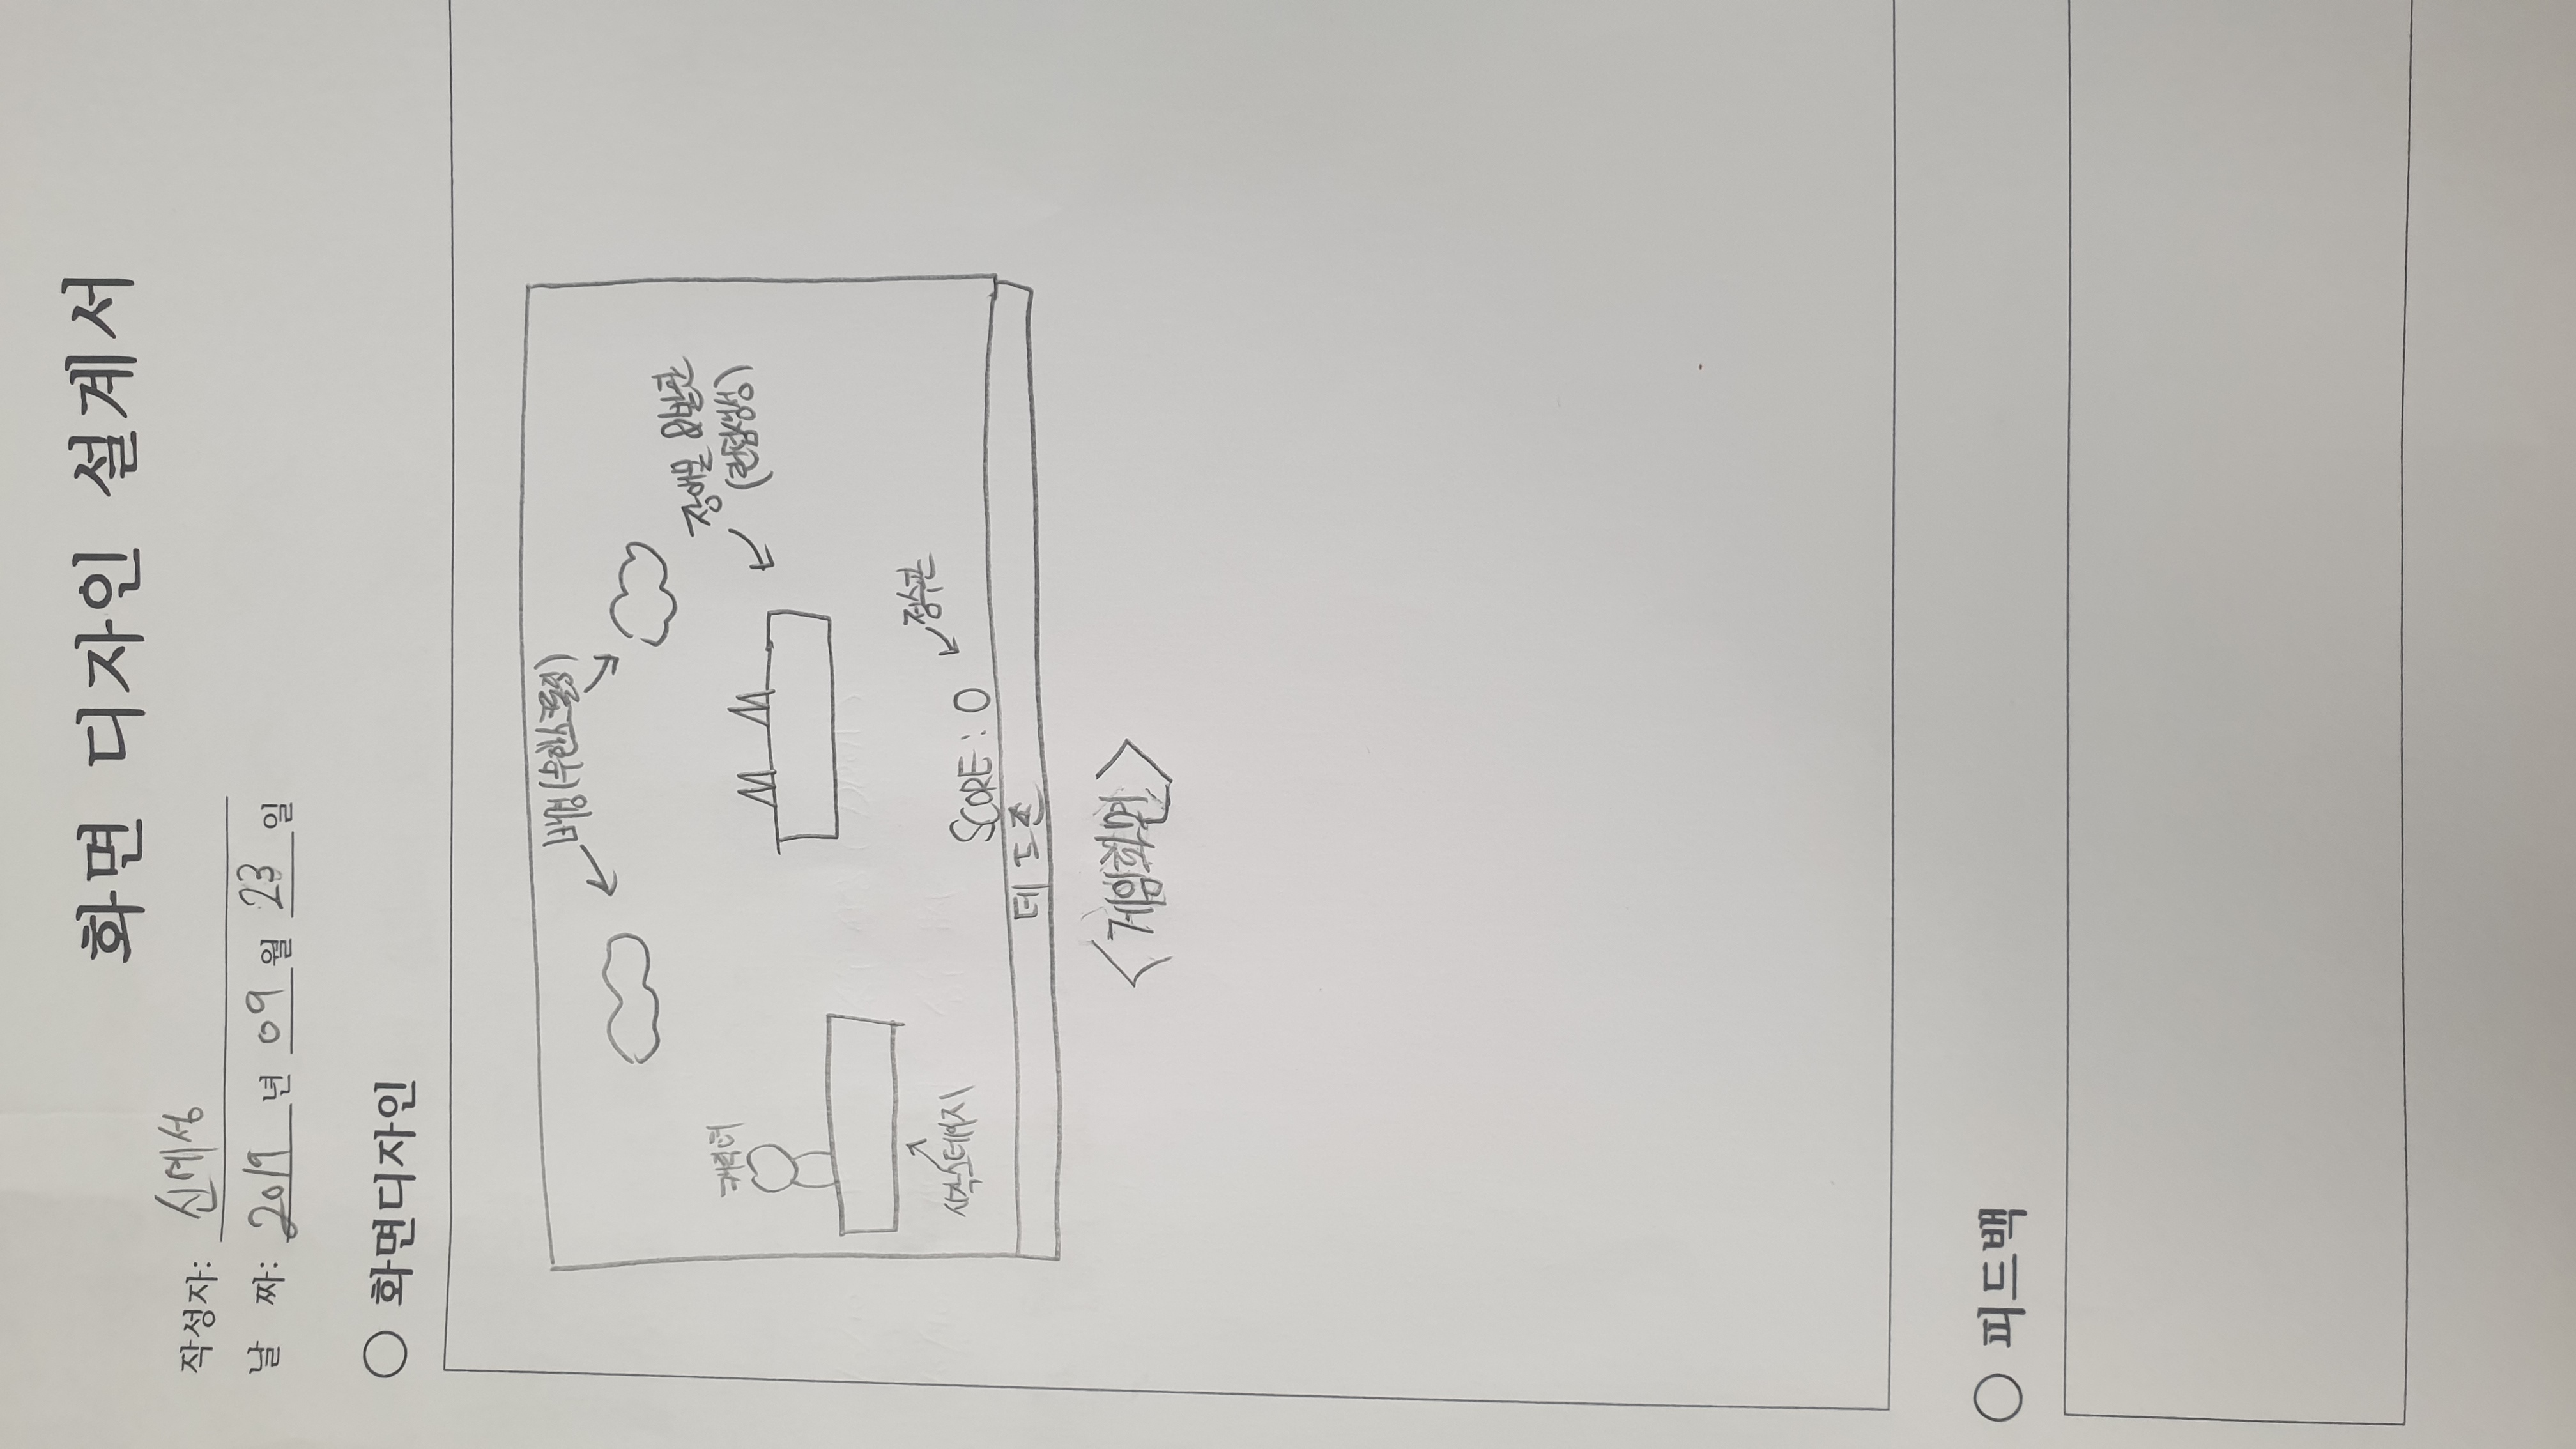 화면 디자인 설계서
작성자: 신예성
날 짜: 2019 년 09 월 23 일
○ 화면디자인
배경(무한스크롤링)
장애물 &발판
(랜덤생성)
캐릭터
시작스테이지
점수판
SCORE : 0
데드존
<게임화면>
○ 피드백